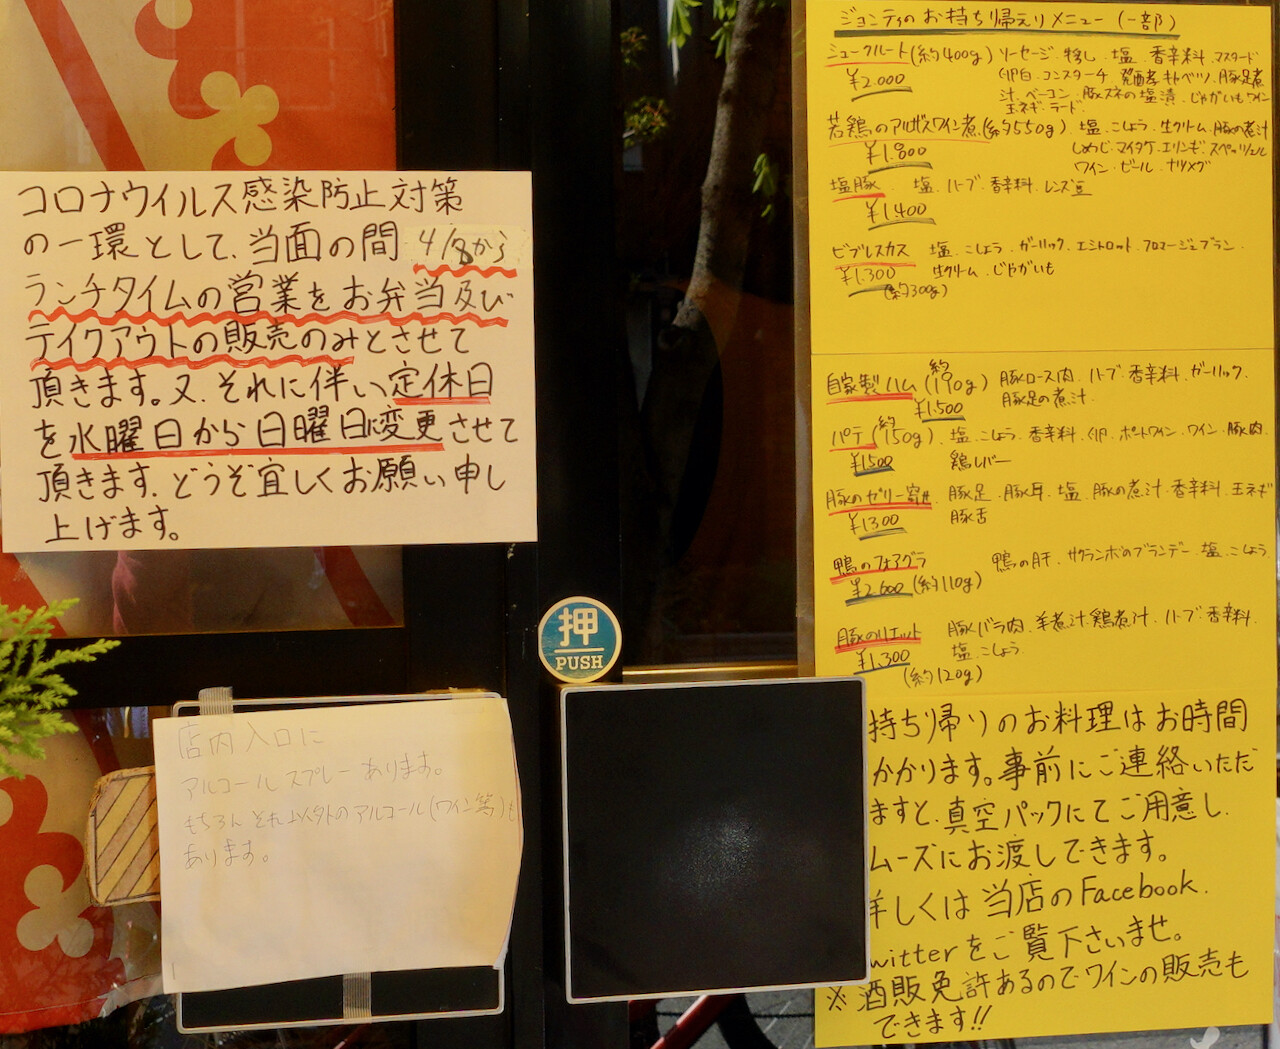 コロナウイルス感染防止対策
の一環として、当面の間 4/8から
ランチタイムの営業をお弁当及び
テイクアウトの販売のみとさせて
頂きます。又、それに伴い定休日
を水曜日から日曜日に変更させて
頂きます、どうぞ宜しくお願い申し
上げます。
押
PUSH
店内入口に
アルコールスプレーあります。
もちろん それ以外のアルコール(ワイン等)も
あります。
ジョンティのお持ち帰えりメニュー(一部)
シュークルート(約400g) ソーセージ・塩・香辛料・マスタード
¥2.000 卵白・コンスターチ・発酵キャベツ・豚足煮
汁・ベーコン・豚スネの塩漬・じゃがいも・ワイン
玉ネギ・ラード
若鶏のアルザスワイン煮(約550g) 塩・こしょう・生クリーム・豚の煮汁
¥1.800 しめじ・マイタケ・エリンギ・スペッツェル
ワイン・ビール・ナツメグ
塩豚 塩・ハーブ・香辛料・レンズ豆
¥1.400
ビブレスカス 塩・こしょう・ガーリック・エシャロット・フロマージュブラン・
¥1.300 生クリーム・じゃがいも
(約300g)
自家製ハム(約190g) 豚ロース肉・ハーブ・香辛料・ガーリック・
¥1.500 豚足の煮汁
パテ(約150g) 塩・こしょう・香辛料・卵・ポートワイン・ワイン・豚肉・
¥1500 鶏レバー
豚のゼリー寄せ 豚足・豚耳・塩・豚の煮汁・香辛料・玉ネギ
¥1300 豚舌
鴨のフォアグラ 鴨の肝・サクランボのブランデー・塩・こしょう
¥2.600(約110g)
豚のリエット 豚バラ肉・羊煮汁・鶏煮汁・ハーブ・香辛料・
¥1.300 塩・こしょう
(約120g)
持ち帰りのお料理はお時間
かかります。事前にご連絡いただ
ますと、真空パックにてご用意し、
ムーズにお渡しできます。
詳しくは当店のFacebook、
witterをご覧下さいませ。
※酒販免許あるのでワインの販売も
できます!!